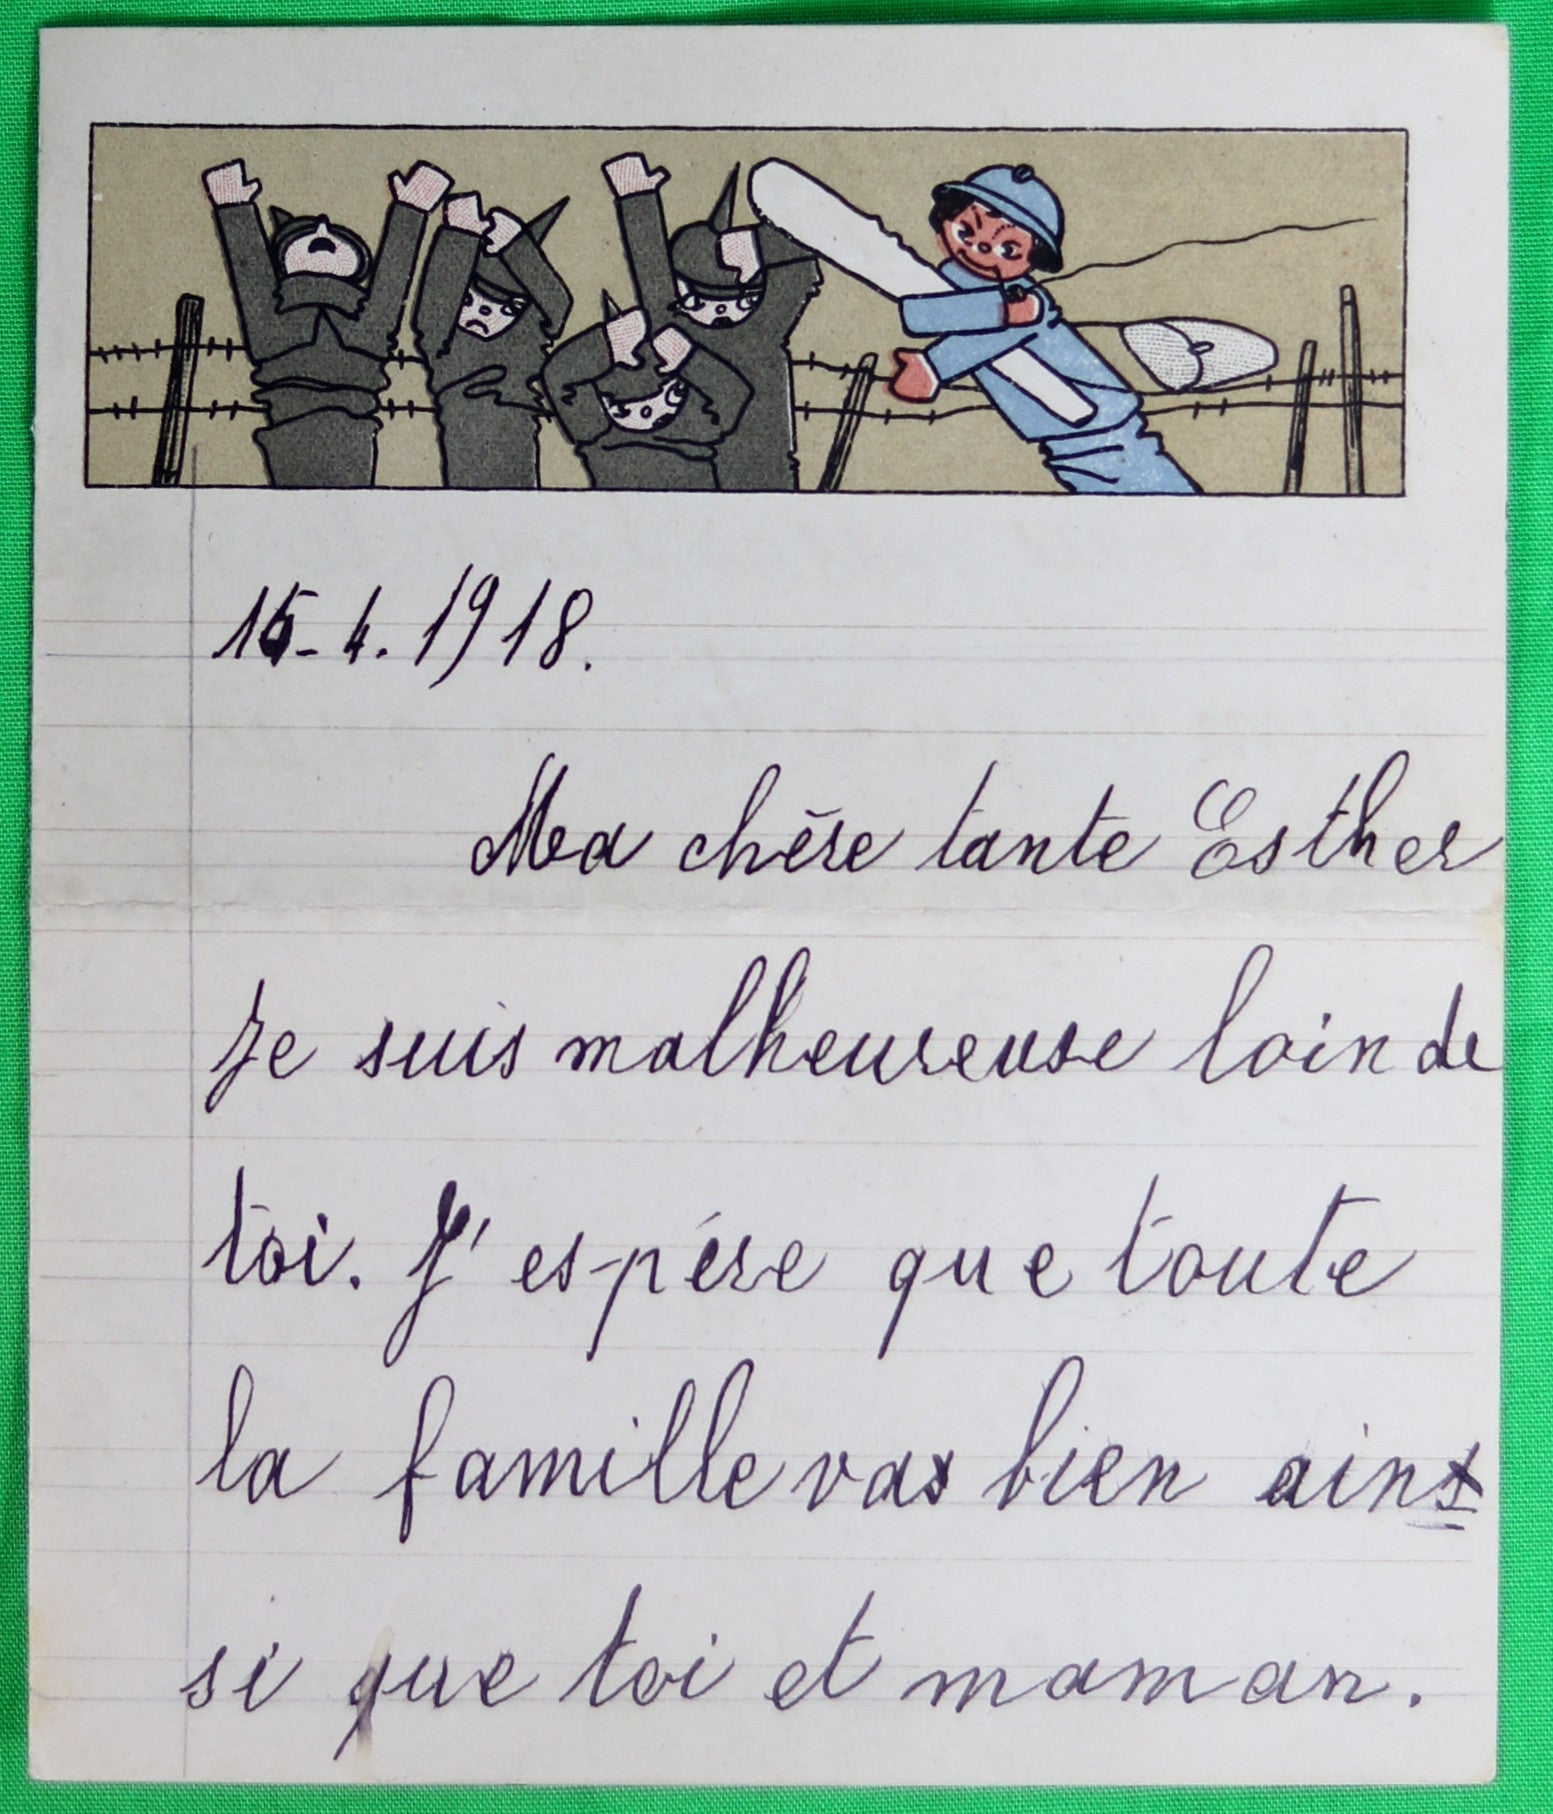 15-4.1918.
Ma chère tante Esther
Je suis malheureuse loin de
toi. J'espére que toute
la famille va bien ain
si que toi et maman.